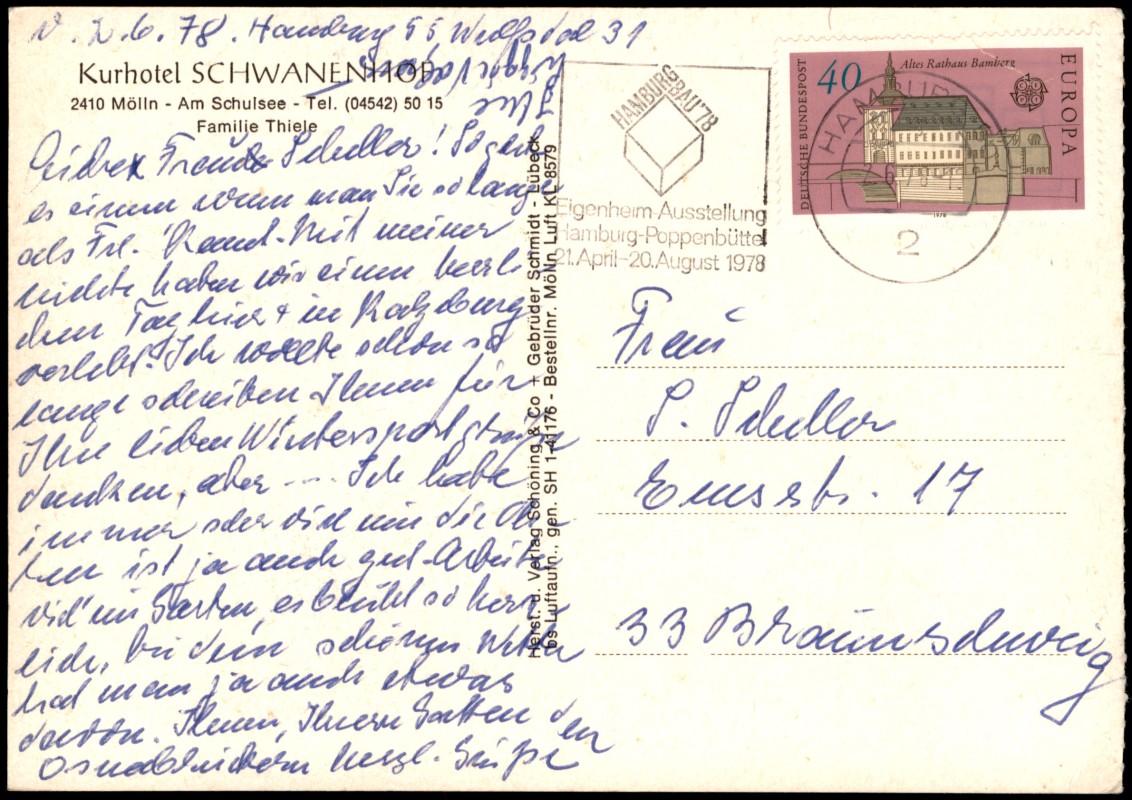 2.6.78. Hamburg 55, Wulfsdal 31
Kurhotel SCHWANENHOF
2410 Mölln - Am Schulsee - Tel. (04542) 50 15
Familie Thiele
Liebe Frau Schuller! So geht
es einem wenn man Sie so lange
als Frl. kannt. Mit meiner
Nichte haben wir einen herrli
chen Tag hier + in Ratzeburg
verlebt. Ich wollte schon so
lange schreiben Ihnen für
Ihre lieben Wintersportgrüße
danken, aber .... Ich habe
immer sehr viel um die Oh
ren ist ja auch gut. Arbeite
viel im Garten, es blüht so herr
lich, bei dem schönen Wetter
hat man ja auch etwas
davon. Ihnen, Ihrem Gatten den
Osnabrückern herzl. Grüße
Ihre
Herst. u. Verlag Schöning & Co + Gebrüder Schmidt - Lübeck
bs-Luftaufn., gen. SH 1-41176 - Bestellnr. Mölln Luft KL 8579
HAMBURG BAU '78
Eigenheim-Ausstellung
Hamburg-Poppenbüttel
21. April-20. August 1978
HAMBURG
2
DEUTSCHE BUNDESPOST
40
Altes Rathaus Bamberg
EUROPA
1978
Frau
S. Schuller
Emsstr. 17
33 Braunschweig